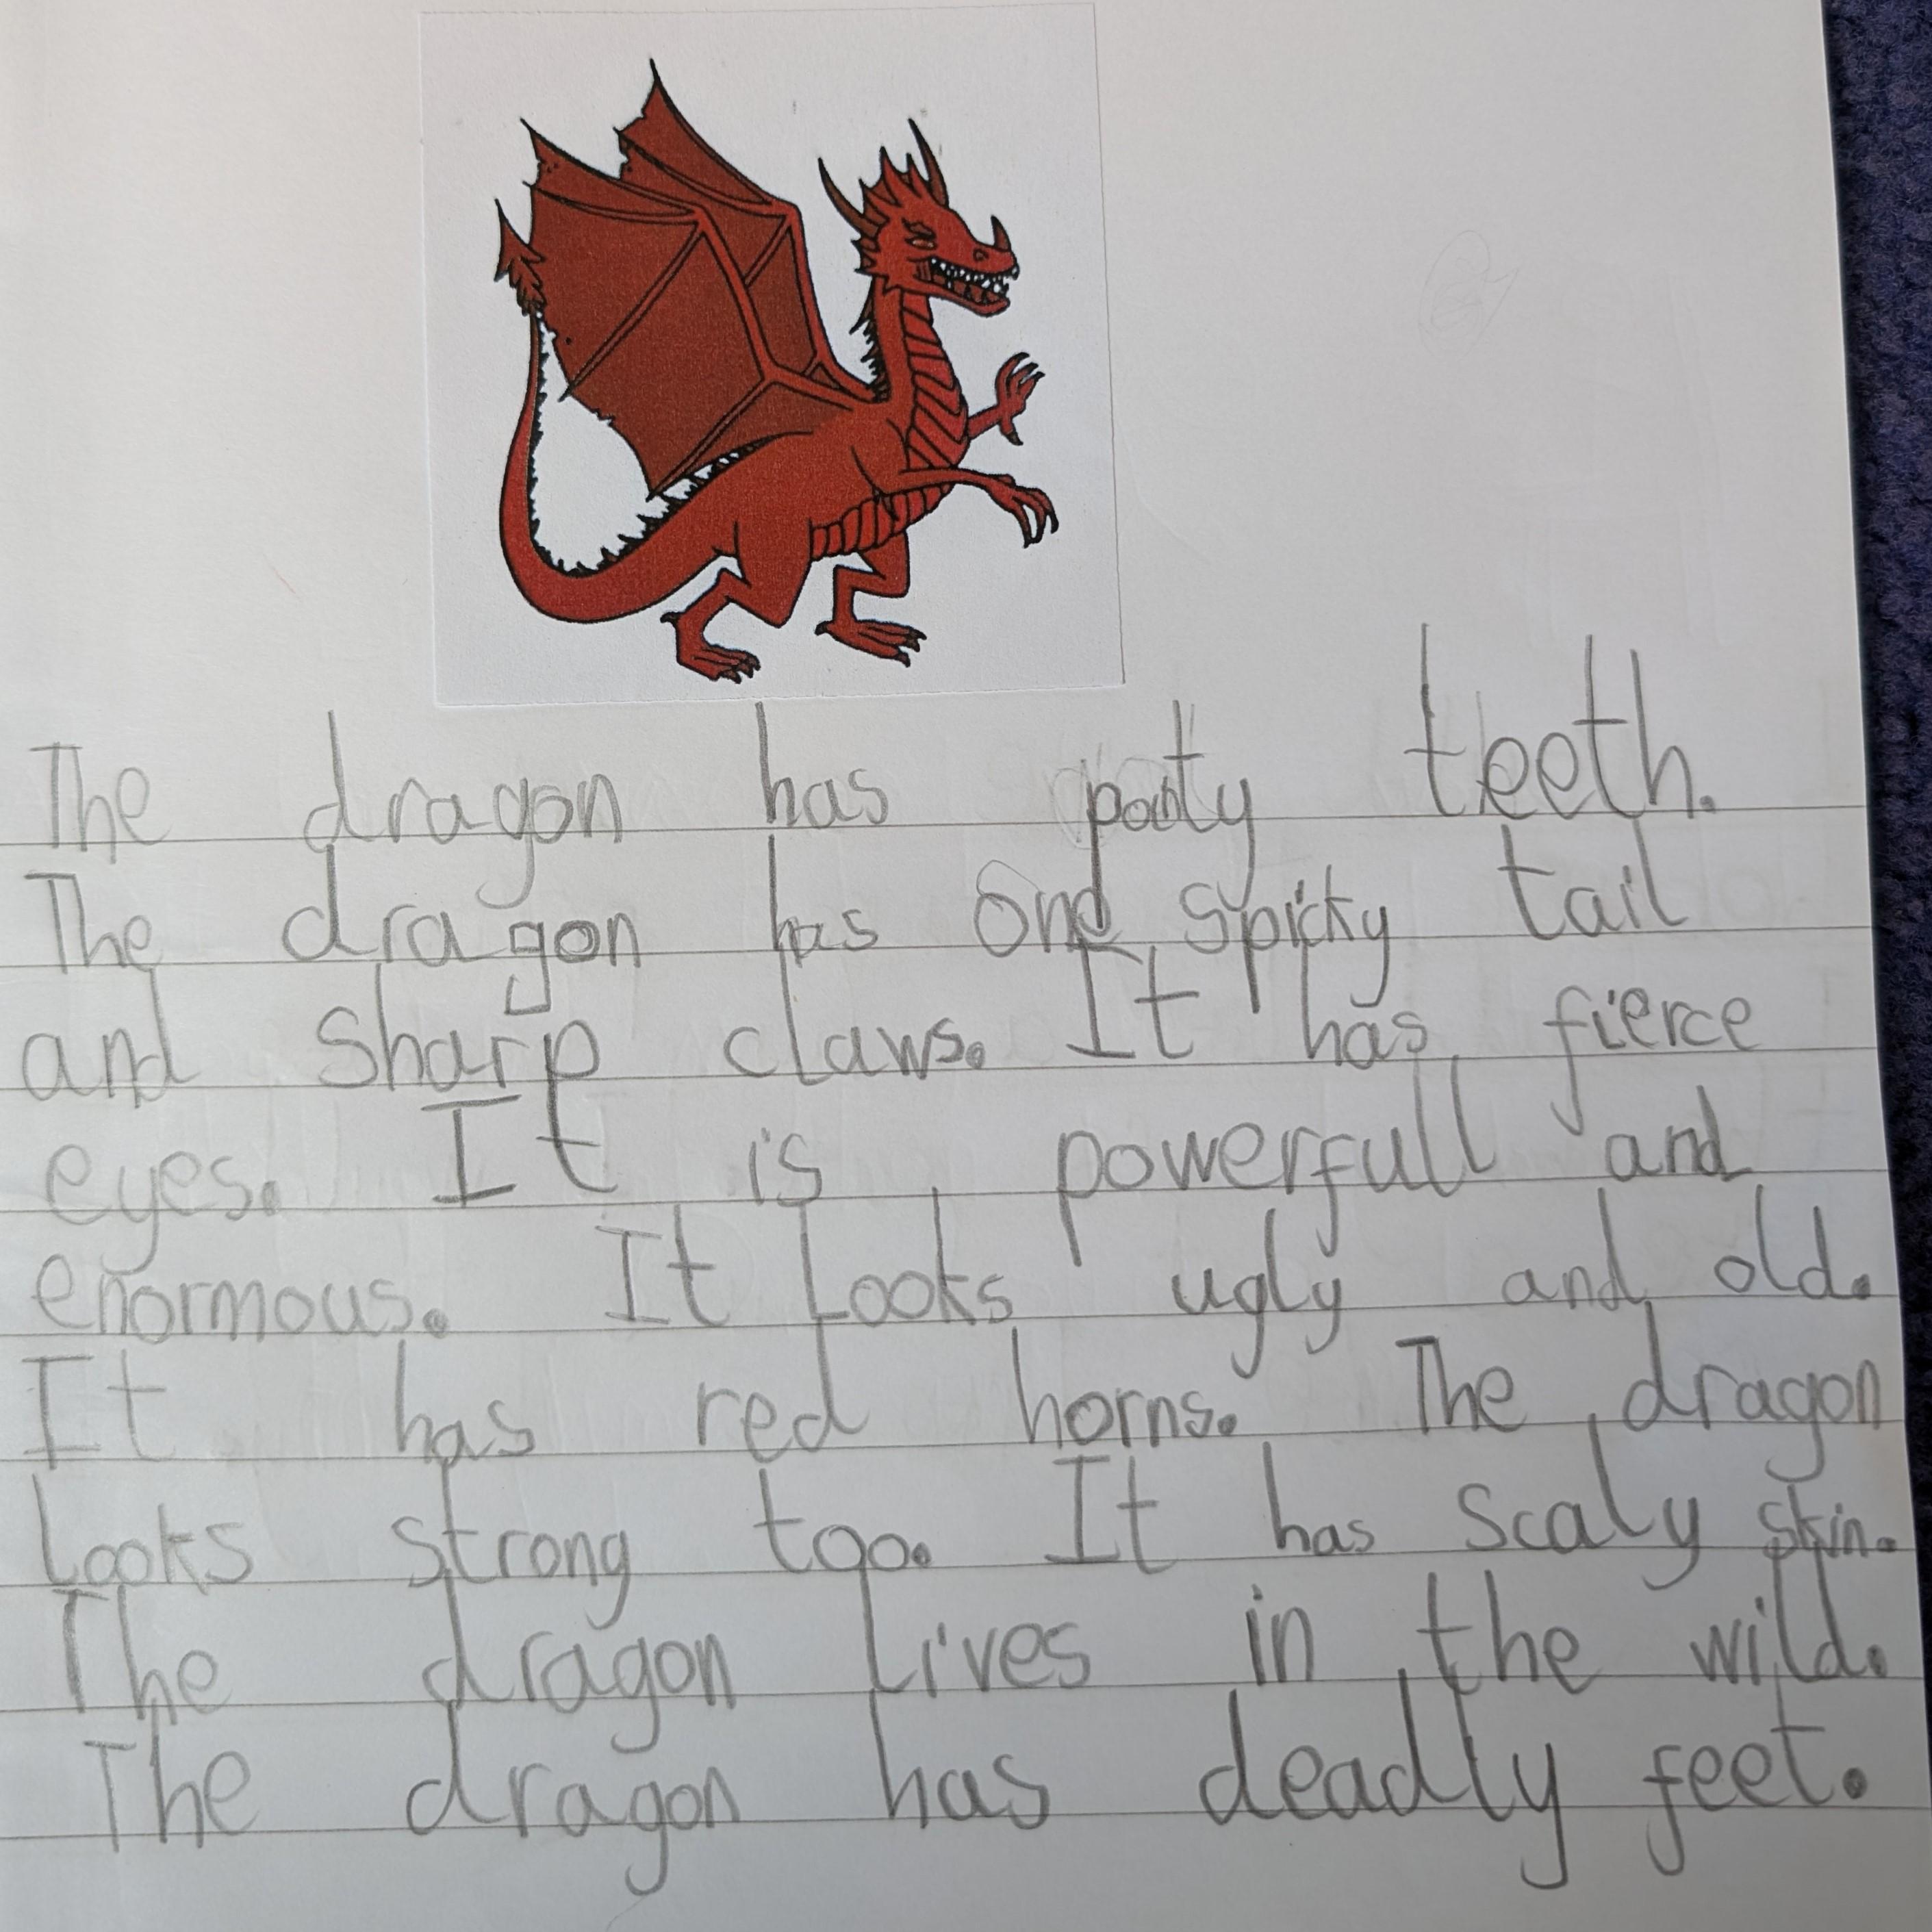 The dragon has teeth.
The dragon has One spicky tail
and sharp claws. It has fierce
eyes. It is powerfull and
enormous. It Looks ugly and old.
It has red horns. The dragon
Looks strong too. It has scaly skin.
The dragon Lives in the wild.
The dragon has deadly feet.